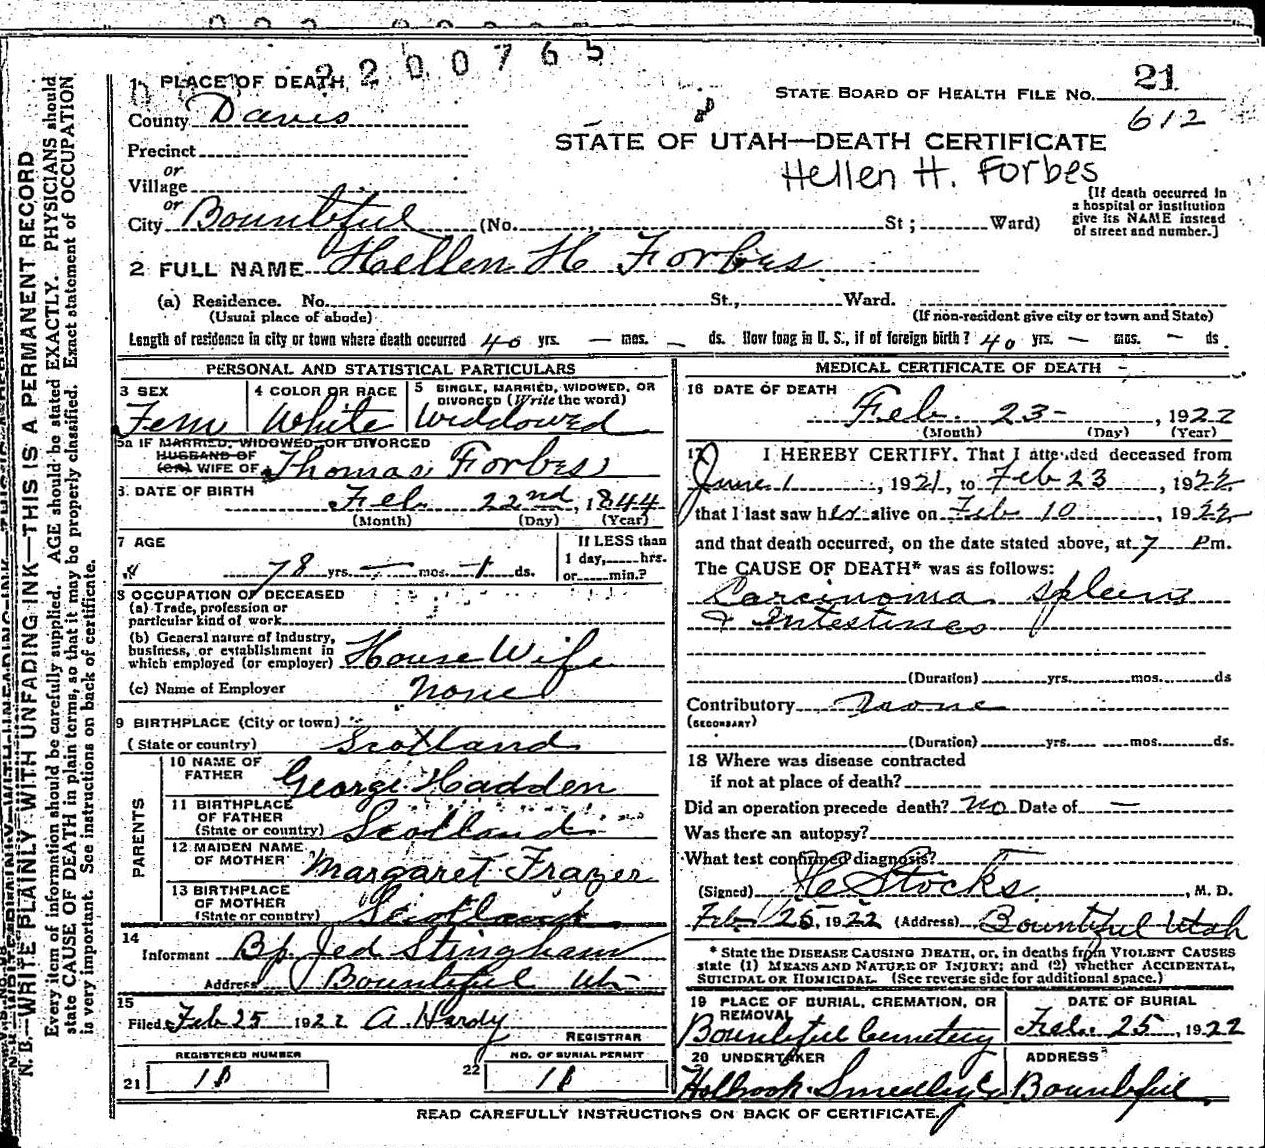 2200765
21
STATE BOARD OF HEALTH FILE No.
612
1 PLACE OF DEATH
County Davis
STATE OF UTAH—DEATH CERTIFICATE
Precinct
or
Hellen H. Forbes
Village
or
City Bountiful (No. St ; Ward)
[If death occurred in
a hospital or institution
give its NAME instead
of street and number.]
2 FULL NAME Hellen H Forbes
(a) Residence. No. St., Ward.
(Usual place of abode) (If non-resident give city or town and State)
Length of residence in city or town where death occurred 40 yrs. — mos. — ds. How long in U. S., if of foreign birth? 40 yrs. — mos. — ds.
PERSONAL AND STATISTICAL PARTICULARS
3 SEX
Fem
4 COLOR OR RACE
White
5 SINGLE, MARRIED, WIDOWED, OR
DIVORCED (Write the word)
Widdowed
5a IF MARRIED, WIDOWED, OR DIVORCED
HUSBAND OF
(OR) WIFE OF Thomas Forbes
6 DATE OF BIRTH
Feb. 22nd, 1844
(Month) (Day) (Year)
7 AGE
78 yrs. — mos. 1 ds.
If LESS than
1 day, hrs.
or min.?
8 OCCUPATION OF DECEASED
(a) Trade, profession or
particular kind of work
(b) General nature of Industry,
business, or establishment in
which employed (or employer) House Wife
(c) Name of Employer none
9 BIRTHPLACE (City or town)
(State or country) Scotland
PARENTS
10 NAME OF
FATHER George Hadden
11 BIRTHPLACE
OF FATHER
(State or country) Scotland
12 MAIDEN NAME
OF MOTHER Margaret Frazer
13 BIRTHPLACE
OF MOTHER
(State or country) Scotland
14
Informant Bp. Jed Stringham
Address Bountiful Ut-
15
Filed Feb 25 1922 A Hardy
REGISTRAR
REGISTERED NUMBER
21 18
NO. OF BURIAL PERMIT
22 18
MEDICAL CERTIFICATE OF DEATH
16 DATE OF DEATH
Feb. 23-, 1922
(Month) (Day) (Year)
17 I HEREBY CERTIFY. That I attended deceased from
June 1, 1921, to Feb 23, 1922
that I last saw her alive on Feb 10, 1922
and that death occurred, on the date stated above, at 7 Pm.
The CAUSE OF DEATH* was as follows:
Carcinoma Spleen
& Intestines
(Duration) yrs. mos. ds
Contributory None
(SECONDARY)
(Duration) yrs. mos. ds.
18 Where was disease contracted
if not at place of death?
Did an operation precede death? no Date of —
Was there an autopsy?
What test confirmed diagnosis?
(Signed) HC Stocks, M. D.
Feb. 25, 1922 (Address) Bountiful Utah
* State the DISEASE CAUSING DEATH, or, in deaths from VIOLENT CAUSES
state (1) MEANS AND NATURE OF INJURY; and (2) whether ACCIDENTAL,
SUICIDAL OR HOMICIDAL. (See reverse side for additional space.)
19 PLACE OF BURIAL, CREMATION, OR
REMOVAL
Bountiful Cemetery
DATE OF BURIAL
Feb. 25, 1922
20 UNDERTAKER
Holbrook Smedley Co
ADDRESS
Bountiful
READ CAREFULLY INSTRUCTIONS ON BACK OF CERTIFICATE.
N. B.—WRITE PLAINLY WITH UNFADING INK—THIS IS A PERMANENT RECORD
Every item of information should be carefully supplied. AGE should be stated EXACTLY. PHYSICIANS should
state CAUSE OF DEATH in plain terms, so that it may be properly classified. Exact statement of OCCUPATION
is very important. See instructions on back of certificate.